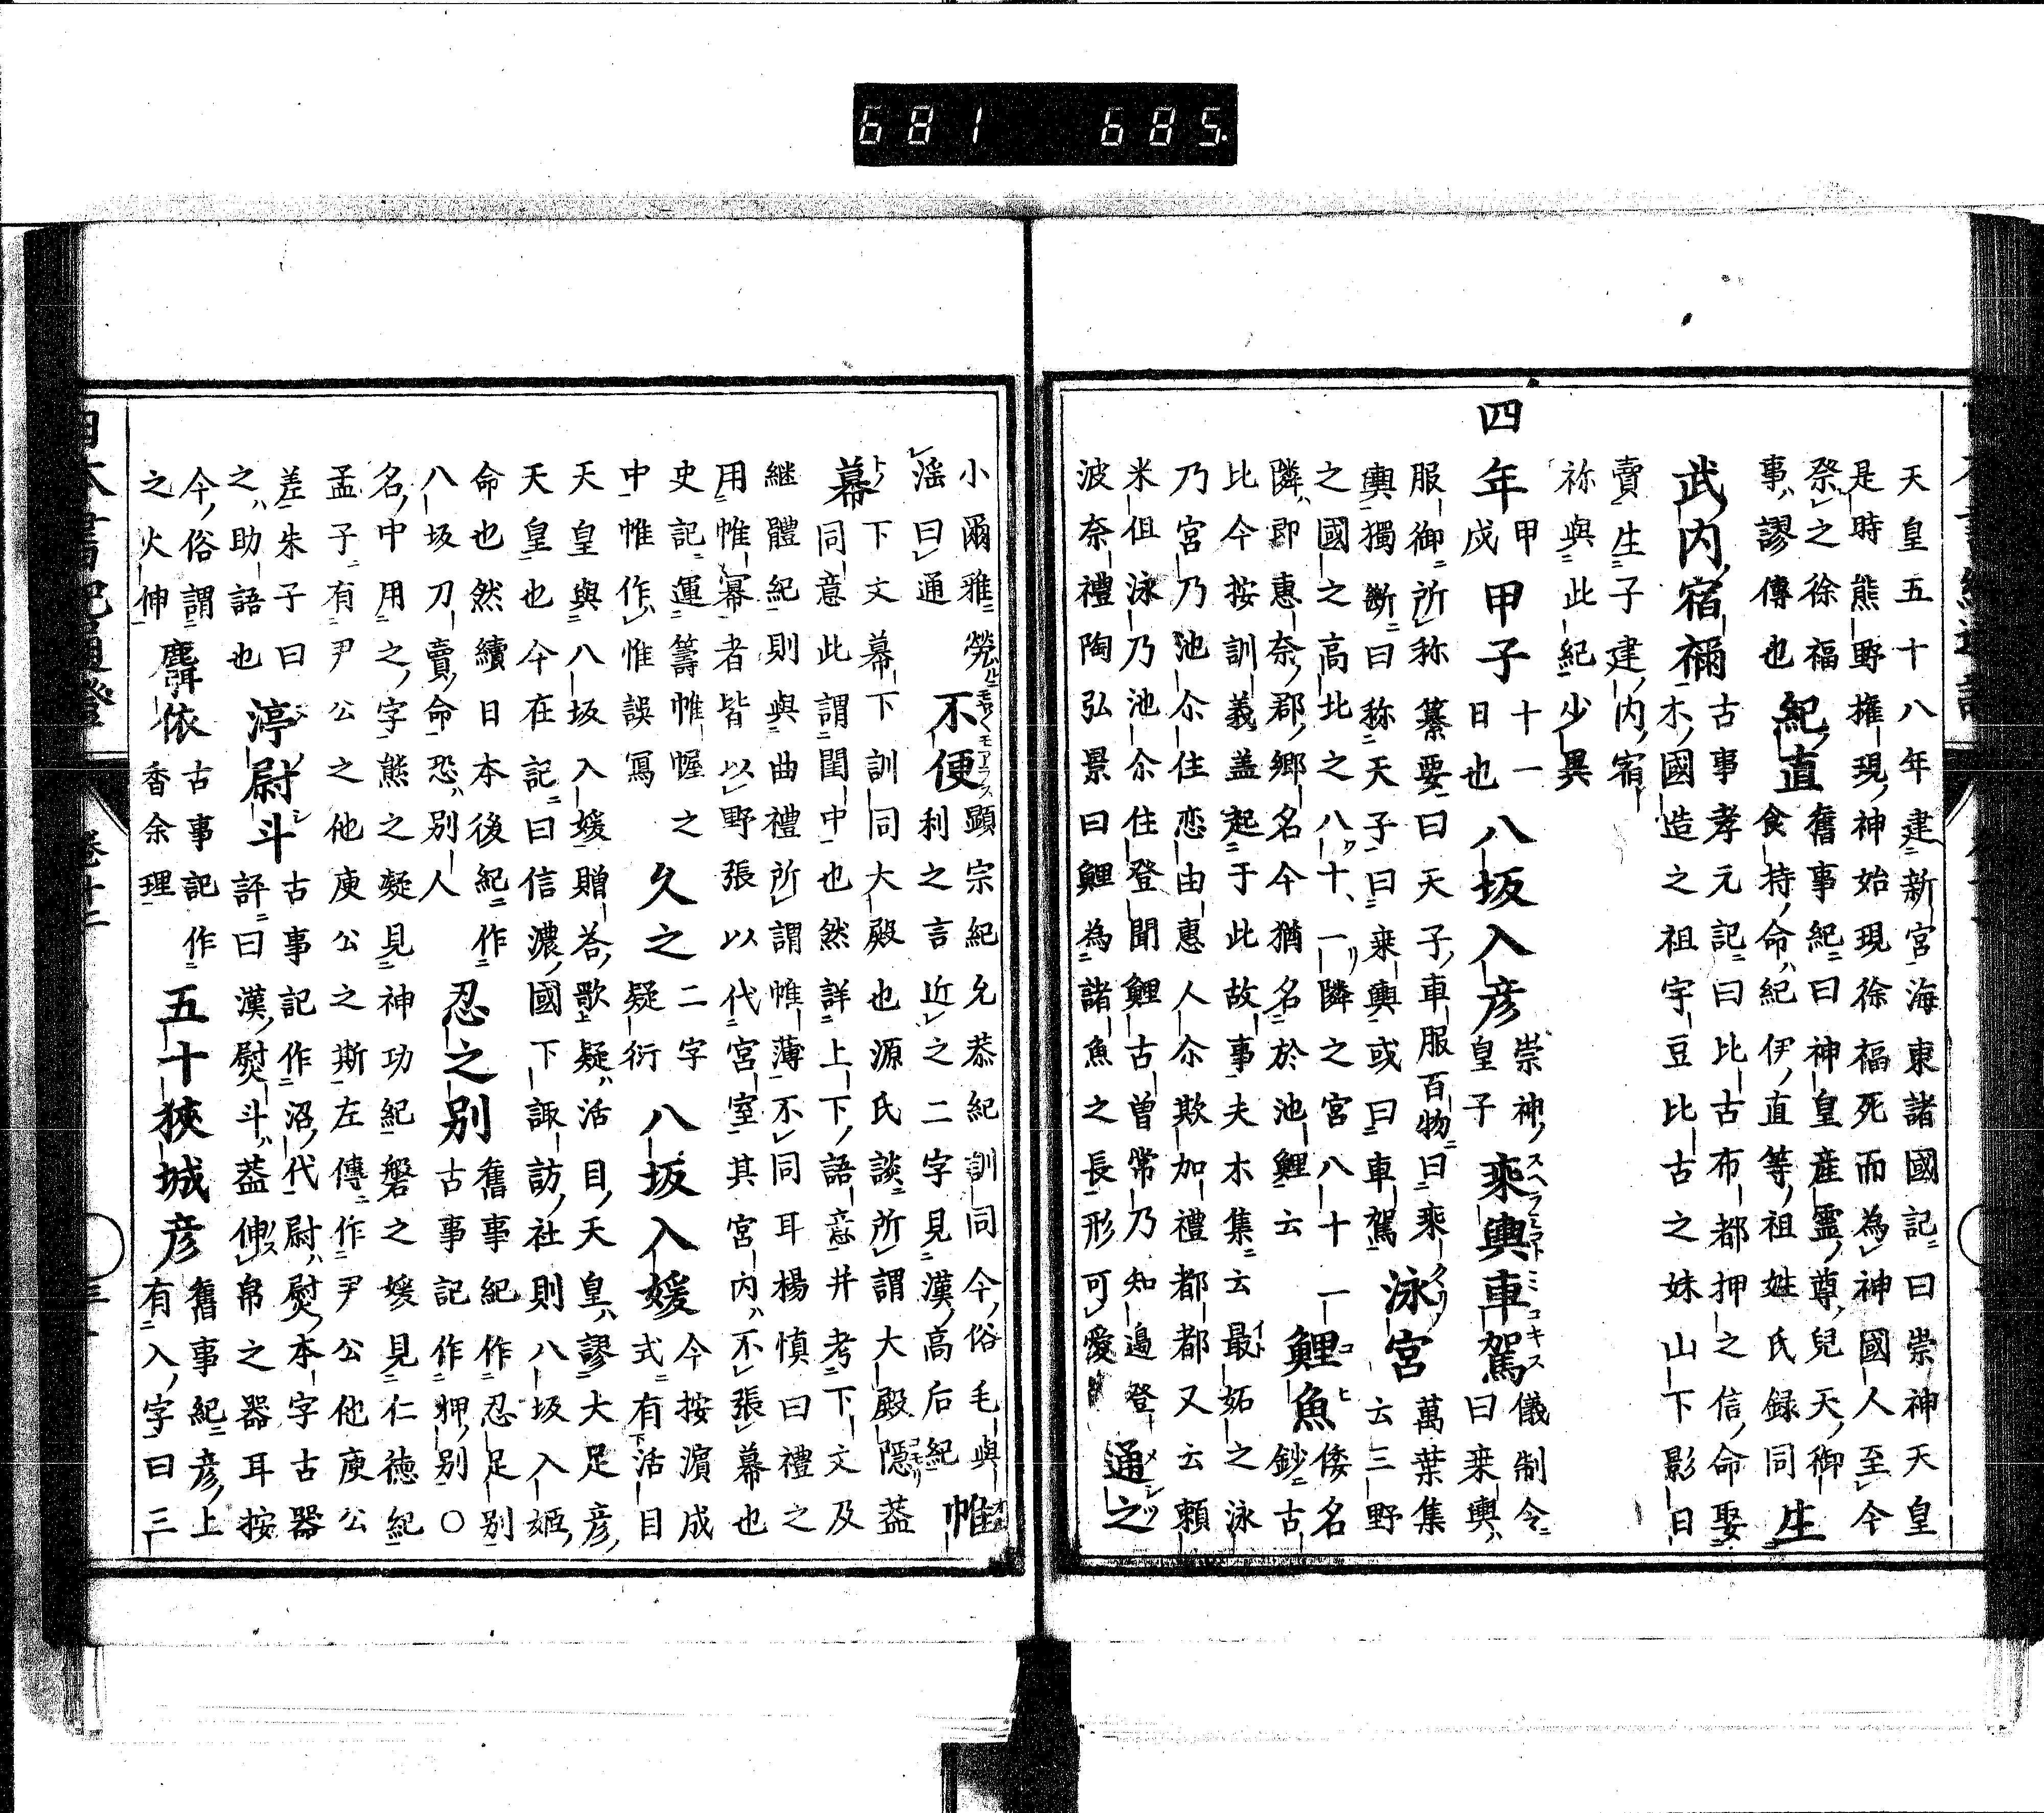 681 685.
天皇五十八年建新宮海東諸國記曰崇神天皇
是時熊野権現神始現徐福死而為神國人至今
祭之徐福 舊事紀曰神皇産霊尊兒天御
事謬傳也 紀直 食持命紀伊直等祖姓氏録同 生
武内宿禰 古事孝元記曰比古布都押之信命娶
木國造之祖宇豆比古之妹山下影日
賣生子建内宿
祢與此紀少異
四年 甲
戌 甲子 十一
日也 八坂入彦 崇神
皇子 乘輿車駕 儀制令
曰乗輿
服御所称 纂要曰天子車服百物曰乘
輿獨斷曰称天子曰乗輿或曰車駕 泳宮 萬葉集
云三野
之國之高北之八十一隣之宮八十一 鯉魚 倭名
鈔古
隣即惠奈郡郷名今猶名於池鯉云
比今按訓義盖起于此故事夫木集云最妬之泳
乃宮乃池尒住恋由惠人尒欺加禮都都又云頼
米佀泳乃池尒住登聞鯉古曽常乃知邉登 通之
波奈禮陶弘景曰鯉為諸魚之長形可愛
小爾雅
滛曰通 不便 顯宗紀允恭紀訓同今俗毛與
利之言近之二字見漢高后紀 帷
幕 下文幕下訓同大殿也源氏談所謂大殿隱葢
同意此謂閨中也然詳上下語意并考下文及
継體紀則與曲禮所謂帷薄不同耳楊慎曰禮之
用帷幂者皆以野張以代宮室其宮内不張幕也
史記運籌帷幄之
中帷作惟誤寫 久之 二字
疑衍 八坂入媛 今按濵成
式有活目
天皇與八坂入媛贈荅歌疑活目天皇謬大足彦
天皇也今在記曰信濃國下諏訪社則八坂入姫
命也然續日本後紀作
八坂刀賣命恐別人 忍之别 舊事紀作忍足别
古事記作押别○
名中用之字熊之凝見神功紀磐之媛見仁徳紀
孟子有尹公之他庾公之斯左傳作尹公他庾公
差朱子曰
之助語也 渟尉斗 古事記作沼代尉熨本字古器
許曰漢熨斗葢伸帛之器耳按
今俗謂
之火伸 麛依 古事記作
香余理 五十狹城彦 舊事紀彦上
有入字曰三